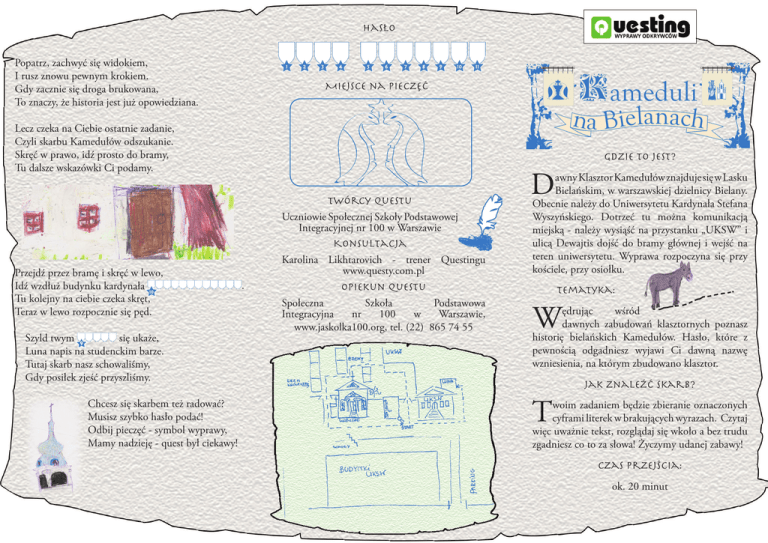 Popatrz, zachwyć się widokiem,
I rusz znowu pewnym krokiem,
Gdy zacznie się droga brukowana,
To znaczy, że historia jest już opowiedziana.
Lecz czeka na Ciebie ostatnie zadanie,
Czyli skarbu Kamedułów odszukanie.
Skręć w prawo, idź prosto do bramy,
Tu dalsze wskazówki Ci podamy.
Przejdź przez bramę i skręć w lewo,
Idź wzdłuż budynku kardynała
Tu kolejny na ciebie czeka skręt,
Teraz w lewo rozpocznie się pęd.
Szyld twym się ukaże,
Luna napis na studenckim barze.
Tutaj skarb nasz schowaliśmy,
Gdy posiłek zjeść przyszliśmy.
Chcesz się skarbem też radować?
Musisz szybko hasło podać!
Odbij pieczęć - symbol wyprawy,
Mamy nadzieję - quest był ciekawy!
HASŁO
MIEJSCE NA PIECZĘĆ
TWÓRCY QUESTU
Uczniowie Społecznej Szkoły Podstawowej
Integracyjnej nr 100 w Warszawie
KONSULTACJA
Karolina Likhtarovich - trener Questingu
www.questy.com.pl
OPIEKUN QUESTU
Społeczna Szkoła Podstawowa
Integracyjna nr 100 w Warszawie,
www.jaskolka100.org, tel. (22) 865 74 55
UKSW
BUDYNKI
UKSW
PARKING
Questing
WYPRAWY ODKRYWCÓW
Kameduli
na Bielanach
GDZIE TO JEST?
Dawny Klasztor Kamedułów znajduje się w Lasku
Bielańskim, w warszawskiej dzielnicy Bielany.
Obecnie należy do Uniwersytetu Kardynała Stefana
Wyszyńskiego. Dotrzeć tu można komunikacją
miejską - należy wysiąść na przystanku „UKSW” i
ulicą Dewajtis dojść do bramy głównej i wejść na
teren uniwersytetu. Wyprawa rozpoczyna się przy
kościele, przy osiołku.
TEMATYKA:
Wędrując wśród
dawnych zabudowań klasztornych poznasz
historię bielańskich Kamedułów. Hasło, które z
pewnością odgadniesz wyjawi Ci dawną nazwę
wzniesienia, na którym zbudowano klasztor.
JAK ZNALEŹĆ SKARB?
Twoim zadaniem będzie zbieranie oznaczonych
cyframi literek w brakujących wyrazach. Czytaj
więc uważnie tekst, rozglądaj się wkoło a bez trudu
zgadniesz co to za słowa! Życzymy udanej zabawy!
CZAS PRZEJŚCIA:
ok. 20 minut